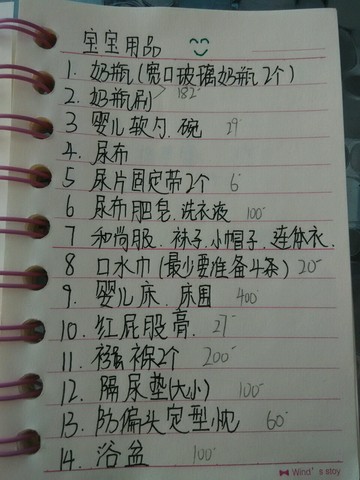 宝宝用品
1. 奶瓶(宽口玻璃奶瓶2个)
2. 奶瓶刷 182
3 婴儿软勺.碗 29
4. 尿布
5 尿片固定带2个 6
6 尿布肥皂.洗衣液 100
7 和尚服.袜子.小帽子.连体衣.
8 口水巾(最少要准备4条) 20
9. 婴儿床.床围 400
10. 红屁股膏. 27
11. 襁褓2个 200
12. 隔尿垫(大小) 100
13. 防偏头定型枕 60
14. 浴盆 100
Wind's stay